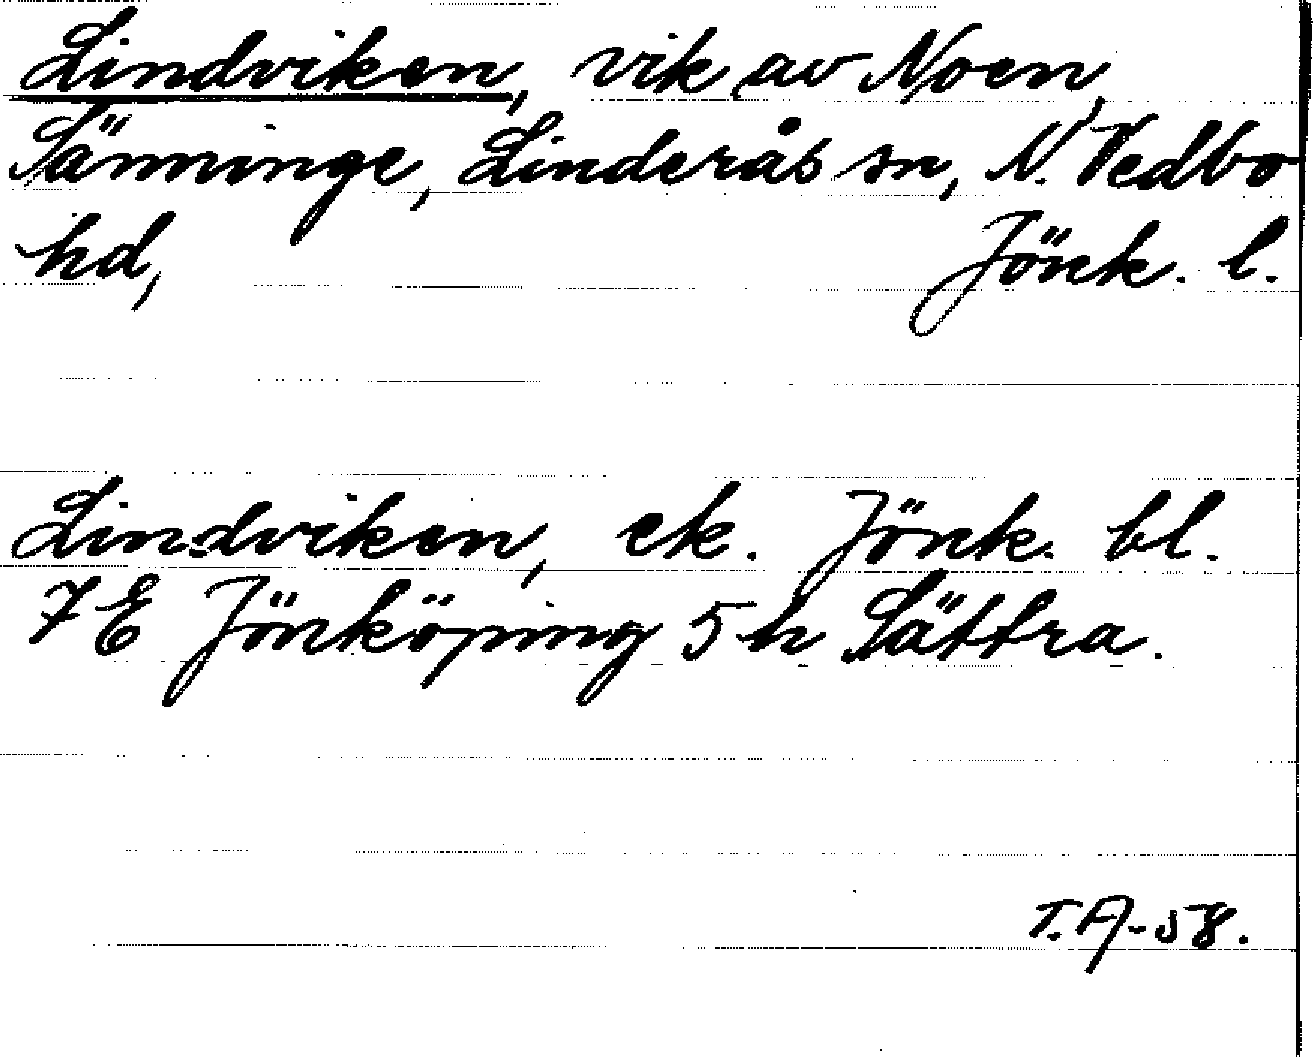 Lindviken, vik av Noen,
Sänninge, Linderås sn, N. Vedbo
hd, Jönk. l.
Lindviken, ek. Jönk. bl.
7E Jönköping 5h Sättra.
T.A-58.